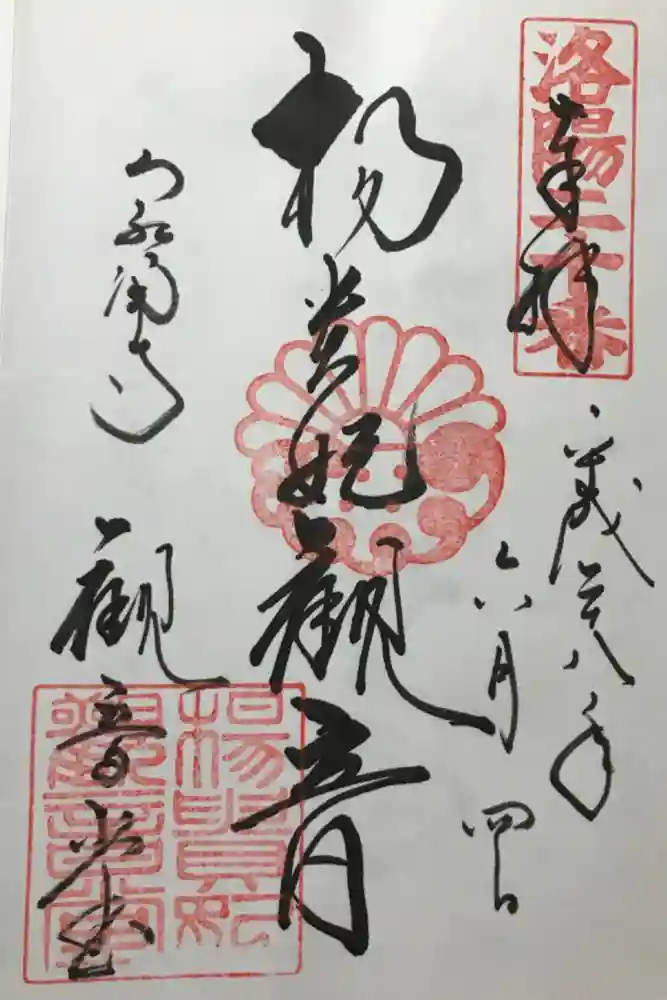 洛陽二十番
奉拝
平成廿八年
六月四日
楊貴妃観音
泉涌寺
観音堂
楊貴妃
觀音堂